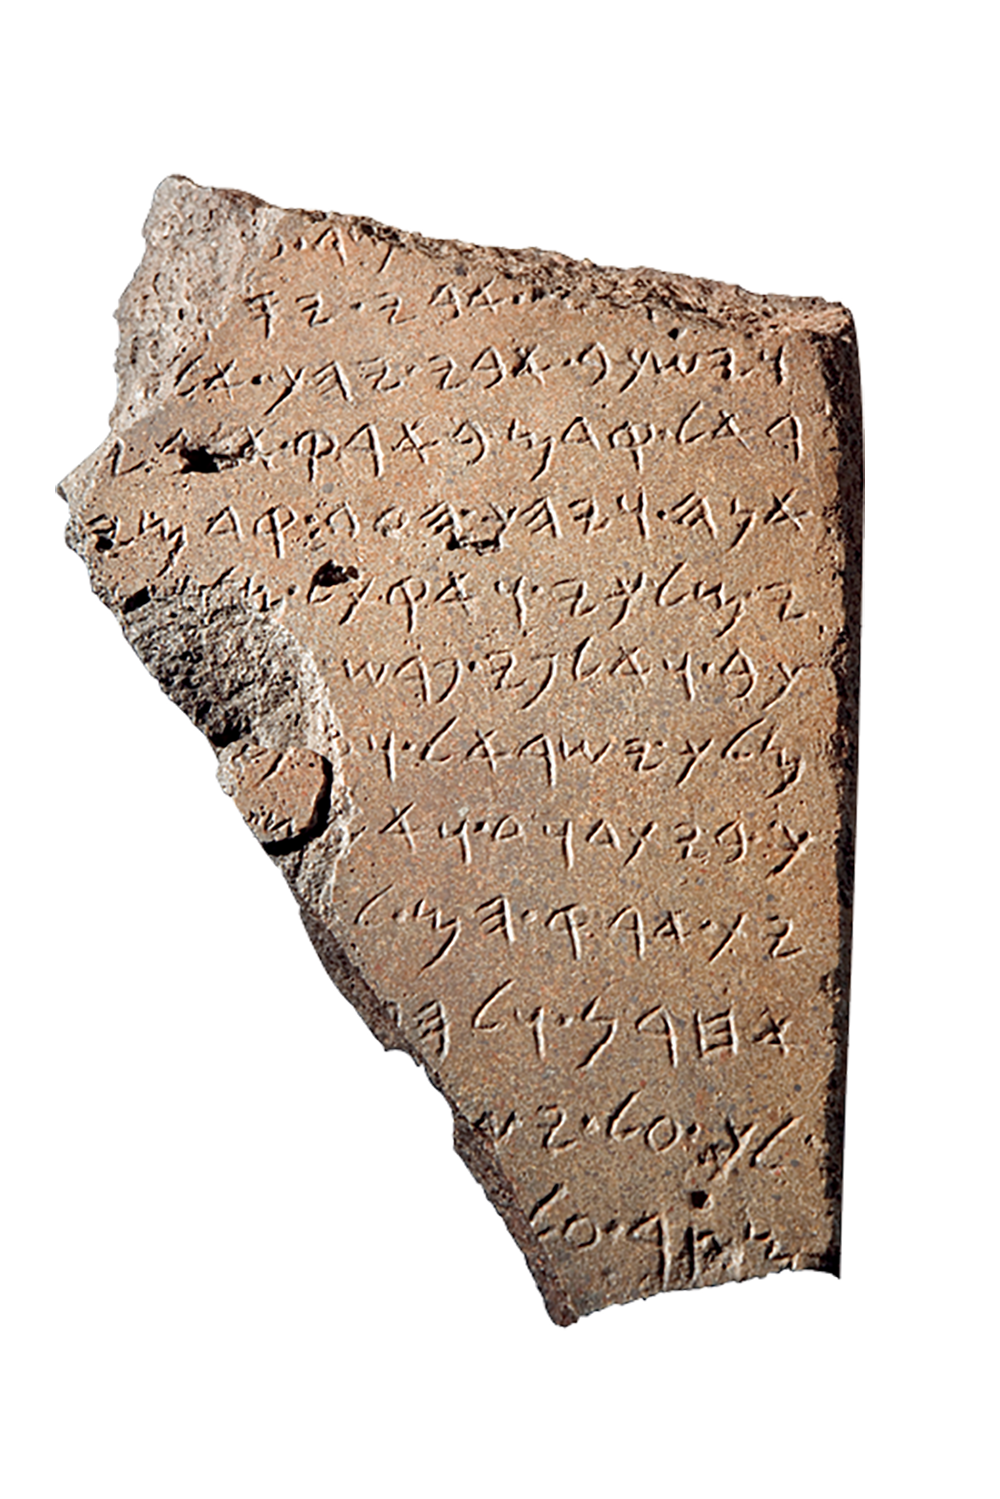 𐤟𐤀𐤁𐤉𐤟𐤉𐤎
𐤅𐤉𐤔𐤊𐤁𐤟𐤀𐤁𐤉𐤟𐤉𐤄𐤊𐤟𐤀𐤋
𐤓𐤀𐤋𐤟𐤒𐤃𐤌𐤟𐤁𐤀𐤓𐤒𐤟𐤀𐤁𐤉
𐤀𐤍𐤄𐤟𐤅𐤉𐤄𐤊𐤟𐤄𐤃𐤃𐤟𐤒𐤃𐤌𐤉
𐤉𐤟𐤌𐤋𐤊𐤉𐤟𐤅𐤀𐤒𐤕𐤋𐤟𐤌𐤋
𐤊𐤁𐤟𐤅𐤀𐤋𐤐𐤉𐤟𐤐𐤓𐤔
𐤌𐤋𐤊𐤟𐤉𐤔𐤓𐤀𐤋𐤟𐤅
𐤊𐤟𐤁𐤉𐤕𐤃𐤅𐤃𐤟𐤅𐤀
𐤉𐤕𐤟𐤀𐤓𐤒𐤟𐤄𐤌𐤟𐤋
𐤀𐤇𐤓𐤍𐤟𐤅𐤋𐤄
𐤋𐤊𐤟𐤏𐤋𐤟𐤉𐤔
𐤌𐤑𐤓𐤟𐤏𐤋